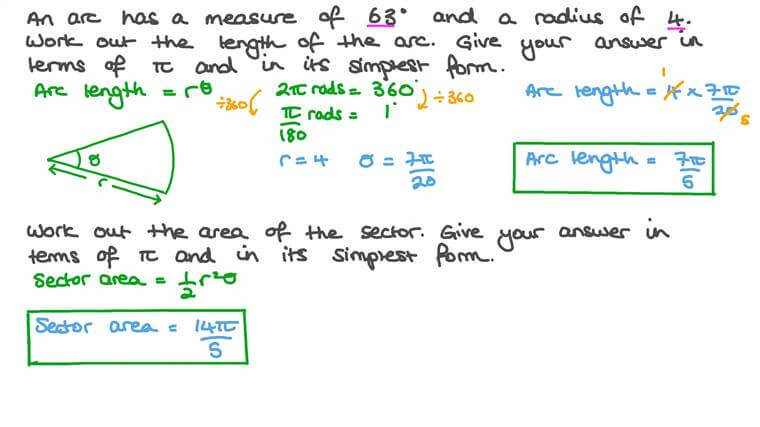 An arc has a measure of 63° and a radius of 4.
Work out the length of the arc. Give your answer in
terms of π and in its simplest form.
Arc length = rθ
÷360
2π rads = 360°
÷360
π/180 rads = 1°
r = 4 θ = 7π/20
Arc length = 4 × 7π/20
1
5
Arc length = 7π/5
θ
r
Work out the area of the sector. Give your answer in
terms of π and in its simplest form.
Sector area = 1/2 r²θ
Sector area = 14π/5